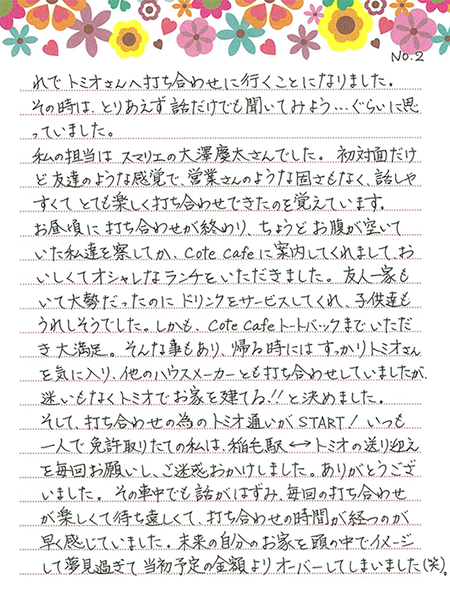 NO.2
れでトミオさんへ打ち合わせに行くことになりました。
その時は、とりあえず話だけでも聞いてみよう…ぐらいに思
っていました。
私の担当はスマリエの大澤慶太さんでした。初対面だけ
ど友達のような感覚で、営業さんのような固さもなく、話しや
すくてとても楽しく打ち合わせできたのを覚えています。
お昼頃に打ち合わせが終わり、ちょうどお腹が空いて
いた私達を察してか、Cote Cafeに案内してくれまして、お
いしくてオシャレなランチをいただきました。友人一家も
いて大勢だったのにドリンクをサービスしてくれ、子供達も
うれしそうでした。しかも、Cote Cafeトートバックまでいただ
き大満足。そんな事もあり、帰る時にはすっかりトミオさん
を気に入り、他のハウスメーカーとも打ち合わせしていましたが、
迷いもなくトミオでお家を建てる!!と決めました。
そして、打ち合わせの為のトミオ通いがSTART!いつも
一人で免許取りたての私は、稲毛駅↔トミオの送り迎え
を毎回お願いし、ご迷惑おかけしました。ありがとうござ
いました。その車中でも話がはずみ、毎回の打ち合わせ
が楽しくて待ち遠しくて、打ち合わせの時間が経つのが
早く感じていました。未来の自分のお家を頭の中でイメージ
して夢見過ぎて当初予定の金額よりオーバーしてしまいました(笑)。